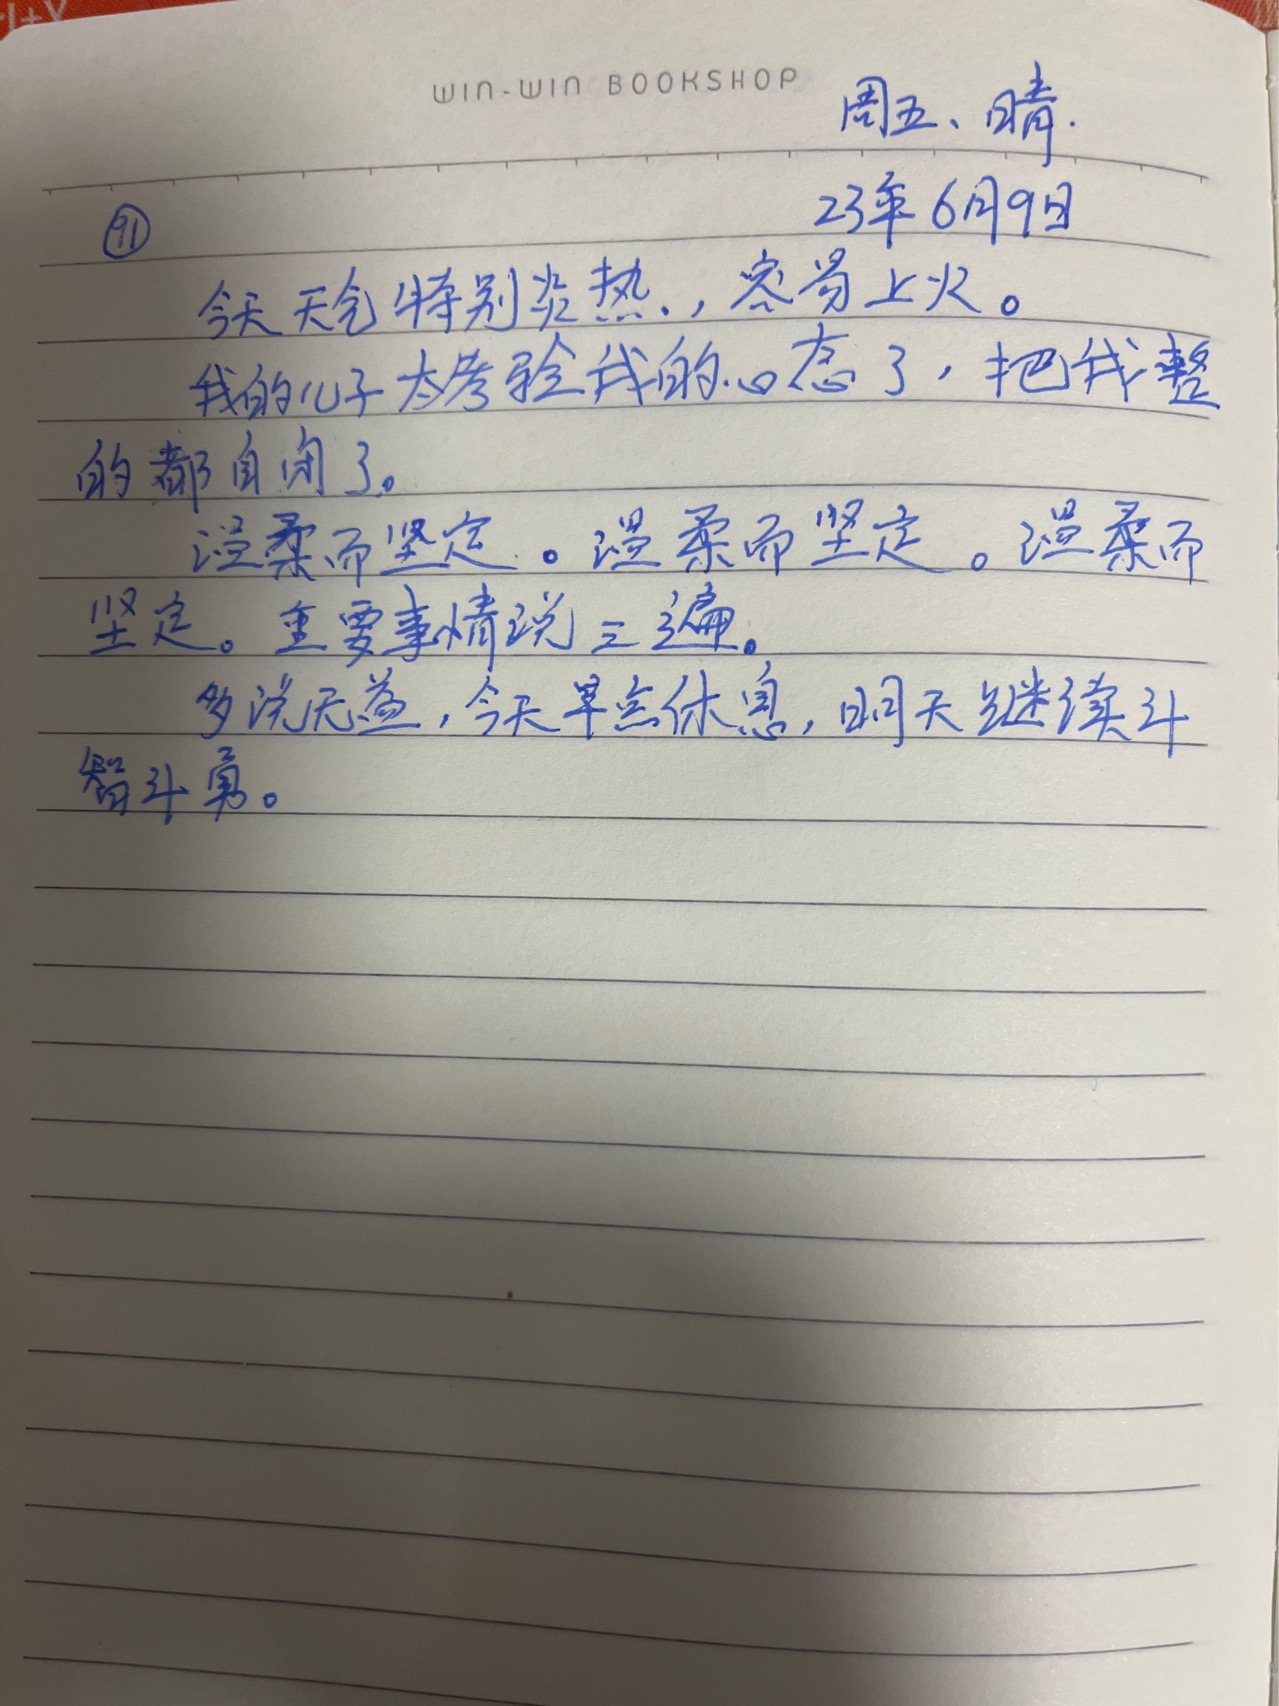 WIN-WIN BOOKSHOP
周五、晴.
23年6月9日
91
今天天气特别炎热.，容易上火。
我的儿子太考验我的心态了，把我整
的都自闭了。
温柔而坚定。温柔而坚定。温柔而
坚定。重要事情说三遍。
多说无益，今天早点休息，明天继续斗
智斗勇。